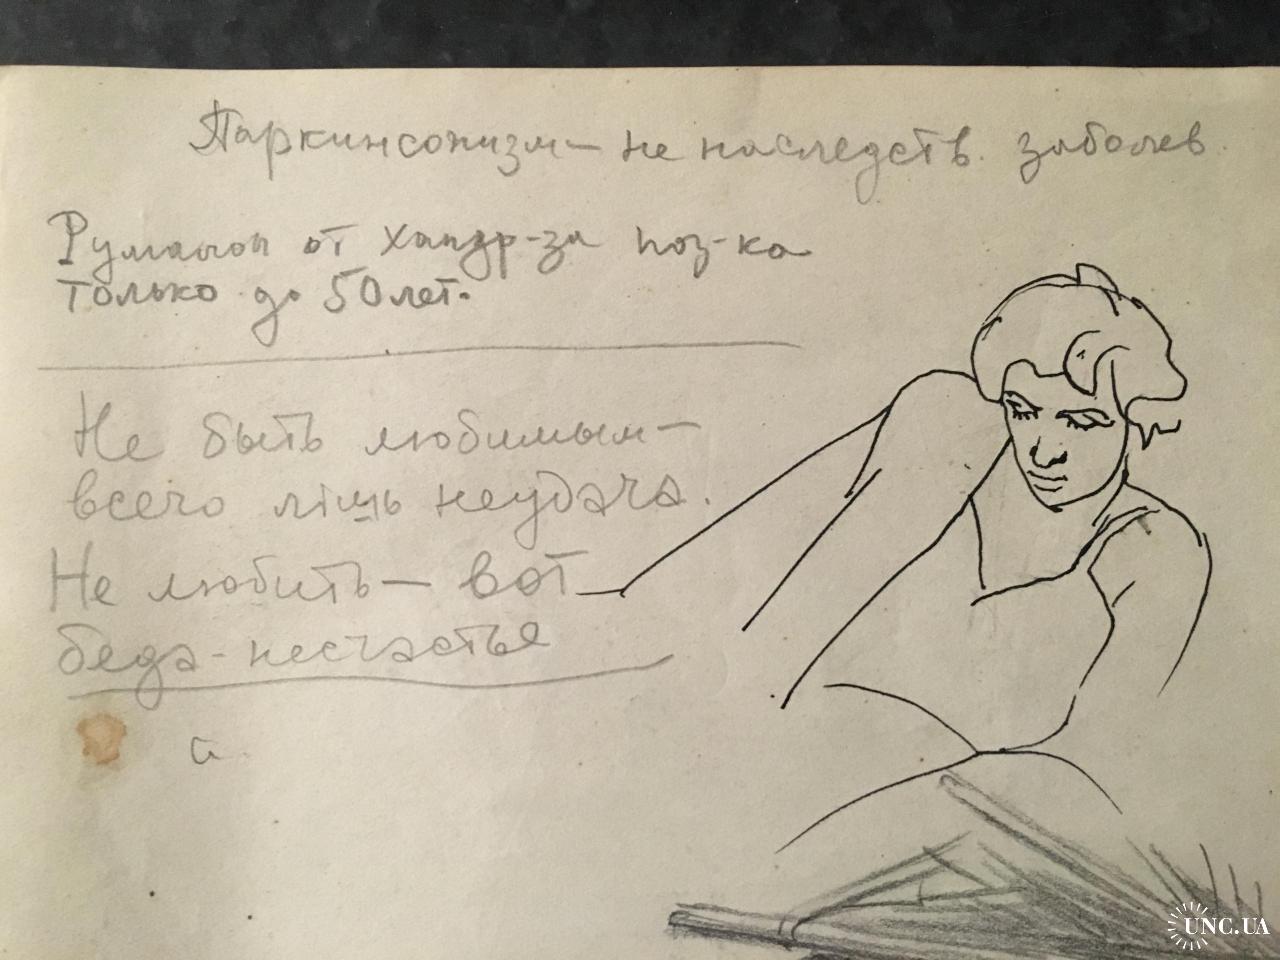 Паркинсонизм — не наследств. заболев.
Румалон от хондр-за поз-ка
только до 50 лет.
Не быть любимым —
всего лишь неудача.
Не любить — вот
беда - несчастье
а
UNC.UA